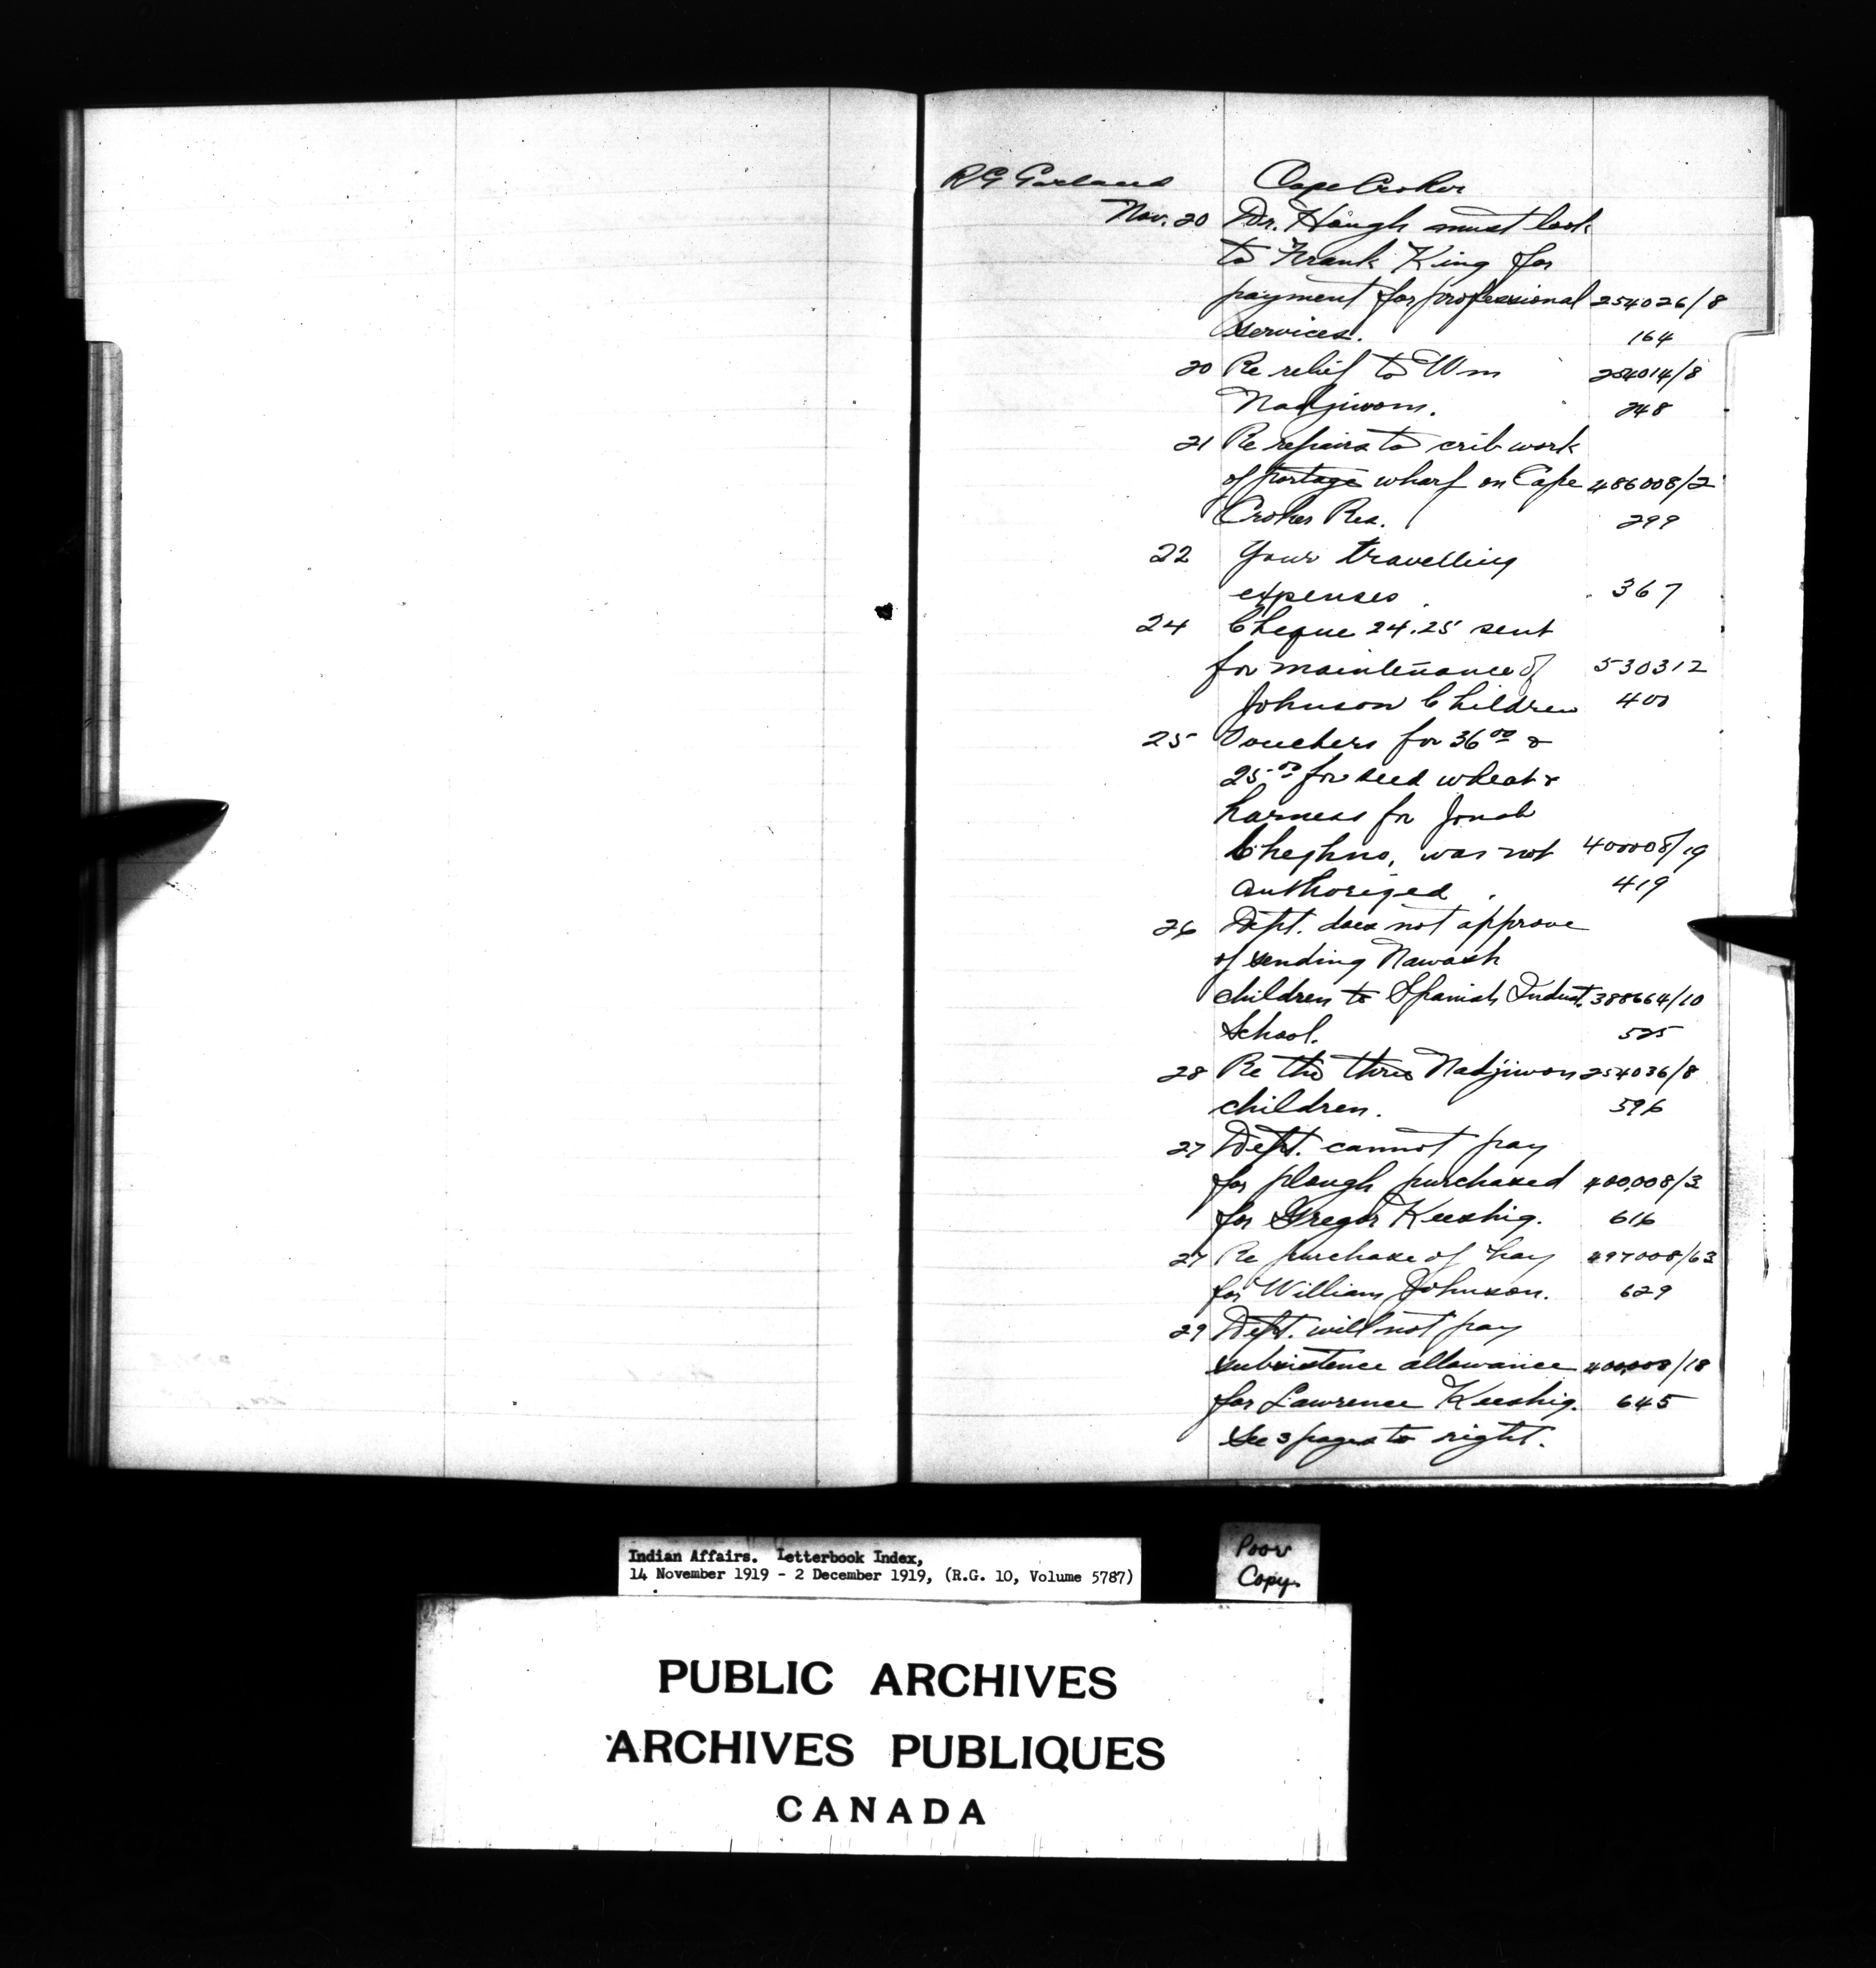 R G Garland Cape Croker
Nov. 20 Dr. Hough must look
to Frank King for
payment for professional 254026/8
services. 164
20 Re relief to Wm 254014/8
Nadjiwon. 248
21 Re repairs to crib work
of portage wharf on Cape 486008/2
Croker Res. 299
22 Your travelling
expenses 367
24 Cheque 24.25 sent
for maintenance of 530312
Johnson Children 400
25 Vouchers for 36 00 &
25 00 for seed wheat &
harness for Jonah
was not 400008/19
authorized. 419
26 Dept. does not approve
of sending Nawash
children to Spanish Indust. 388664/10
School. 525
28 Re the three Nadjiwon 254036/8
children. 596
27 Dept. cannot pay
for plough purchased 400,008/3
for Gregor Keeshig. 616
27 Re purchase of hay 497008/63
for William Johnson. 629
29 Dept. will not pay
subsistence allowance 400,008/18
for Lawrence Keeshig. 645
See 3 pages to right.
Indian Affairs. Letterbook Index,
14 November 1919 - 2 December 1919, (R.G. 10, Volume 5787)
Poor
Copy.
PUBLIC ARCHIVES
ARCHIVES PUBLIQUES
CANADA